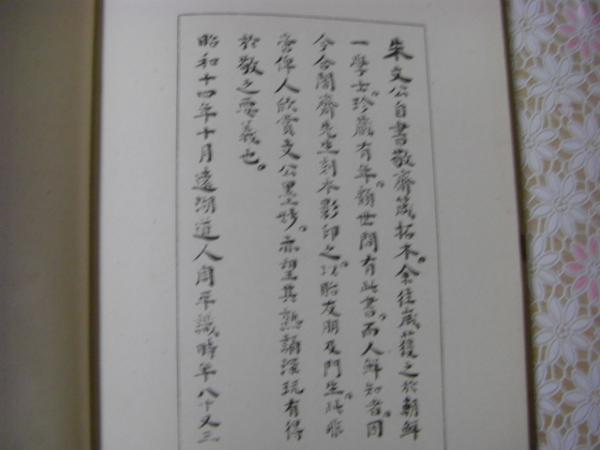 朱文公自書敬齋箴拓本。余往歳獲之於朝鮮
一學士。珍蔵有年。顧世間有此書。而人鮮知者。因
今合闇齋先生刻本影印之。以貽友朋及門生。此非
啻俾人欣賞文公墨妙。亦望其熟誦深玩有得
於敬之要義也。
昭和十四年十月遠湖道人周平識時年八十又三